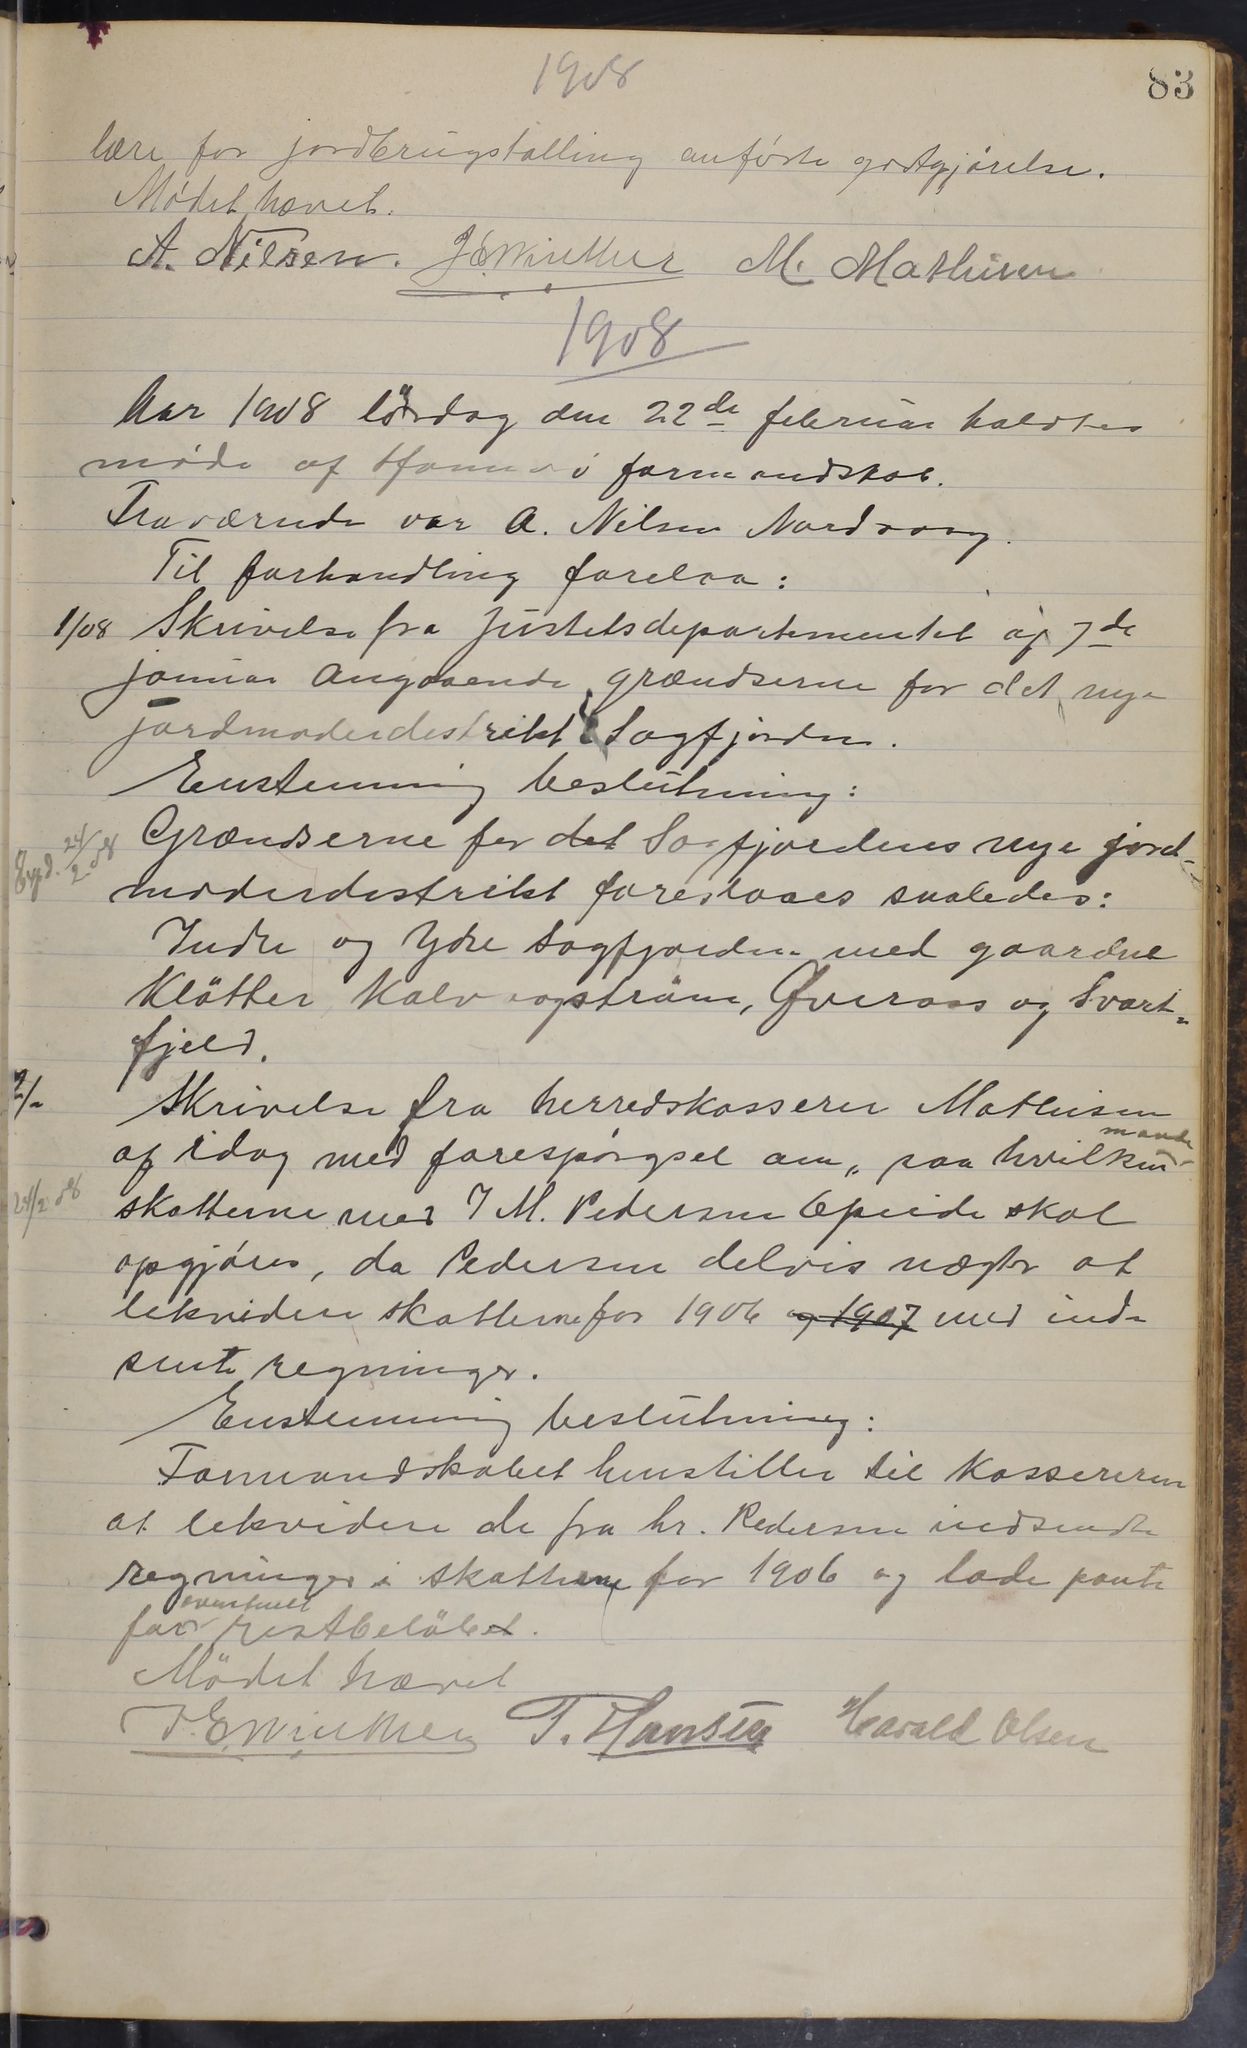 1908
83
lære for jordbrugstælling anførte godtgjørelse.
Mødet hævet.
A. Nilsen. J E Winther M. Mathisen
1908
Aar 1908 lørdag den 22de februar holdtes
møde af formandskab.
Fraværende var A. Nilsen Nordvaag.
Til forhandling forelaa:
1/08 Skrivelse fra Justitsdepartementet af 7de
januar angaaende grændserne for det nye
jordmoderdestrikt Sagfjorden.
Enstemmig beslutning:
Exp. 24/2 08
Grændserne for det Sagfjordens nye jord-
moderdestrikt foreslaaes saaledes:
Indre og Ydre Sagfjorden med gaardene
Kløtter Kalvaagstrøm, Øveraas og Svart-
fjeld.
2/- Skrivelse fra herredskasserer Mathisen
af idag med forespørgsel om, paa hvilken maade
24/2 08
skatterne med J M. Pedersen Opeide skal
opgjøres, da Pedersen delvis nægter at
lekvidere skatterne for 1906 og 1907 med ind-
sente regninger.
Enstemmig beslutning:
Formandskabet henstiller til kassereren
at lekvidere de fra hr. Pedersen indsendte
regninger i skatterne for 1906 og lade pante
for eventuelt restbeløbet.
Mødet hævet
J. E. Winther T. Hansen Harald Olsen